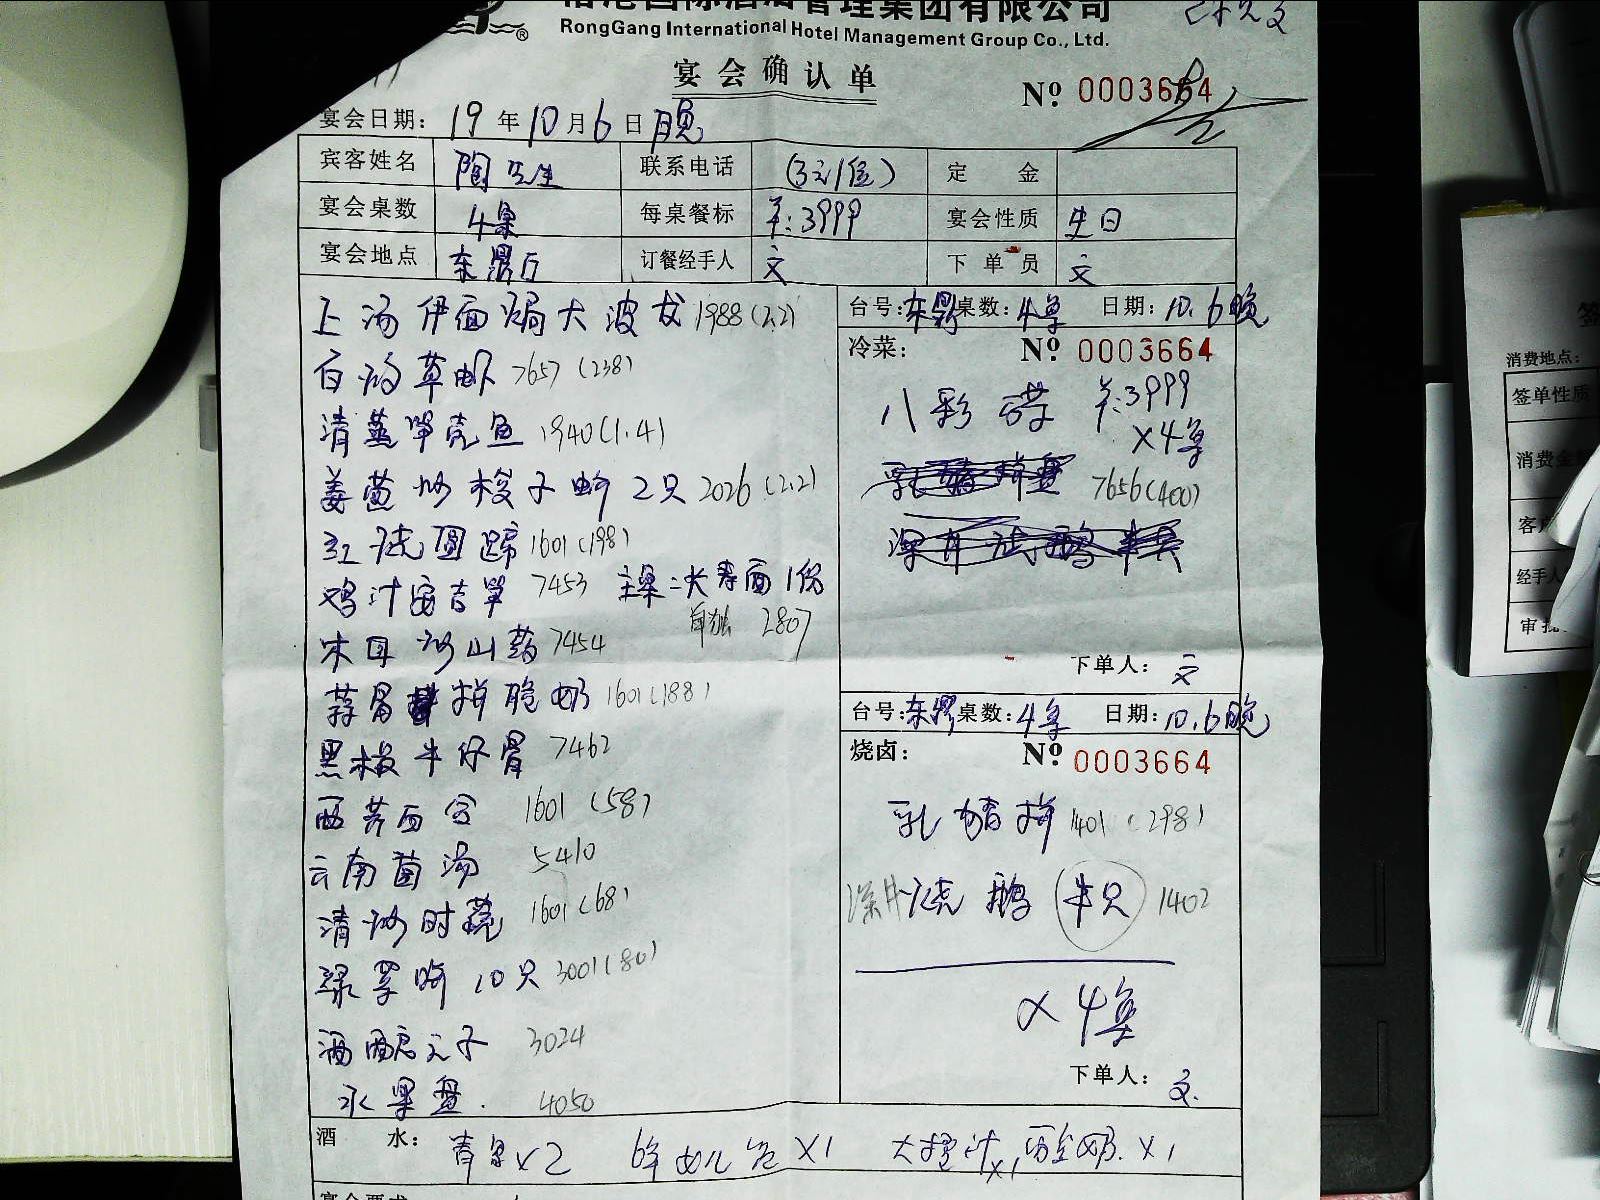 国际酒店管理集团有限公司
RongGang International Hotel Management Group Co., Ltd.
宴会确认单
Nº 0003664
宴会日期: 19 年 10 月 6 日 晚
宾客姓名 陶先生 联系电话 (3元/位) 定 金
宴会桌数 4桌 每桌餐标 羊:3999 宴会性质 生日
宴会地点 东鼎厅 订餐经手人 文 下 单 员 文
上汤伊面焗大波龙 1988(2.2)
白灼草虾 7657 (238)
清蒸笋壳鱼 1940(1.4)
姜葱炒梭子蟹 2只 2026(2.2)
红烧圆蹄 1601(198)
鸡汁安吉笋 7453 主桌:长寿面1份
单独 2807
木耳炒山药 7454
蒜香 拼脆奶 1601(188)
黑椒牛仔骨 7462
西芹百合 1601 (58)
云南菌汤 5410
清炒时蔬 1601(68)
绿 10只 3001(80)
酒酿元子 3024
水果盘. 4050
台号:东鼎 桌数:4桌 日期:10.6晚
冷菜: Nº 0003664
八彩碟 羊:3999
×4桌
乳猪拼盘 7656(400)
深井烧鹅半只
下单人: 文
台号:东鼎 桌数:4桌 日期:10.6晚
烧卤: Nº 0003664
乳猪拼 1401(298)
深井烧鹅 半只 1402
×4桌
下单人: 文.
酒 水: 青岛×2 ×1 ×1 ×1
消费地点:
签单性质
消费金
客户
经手人
审批